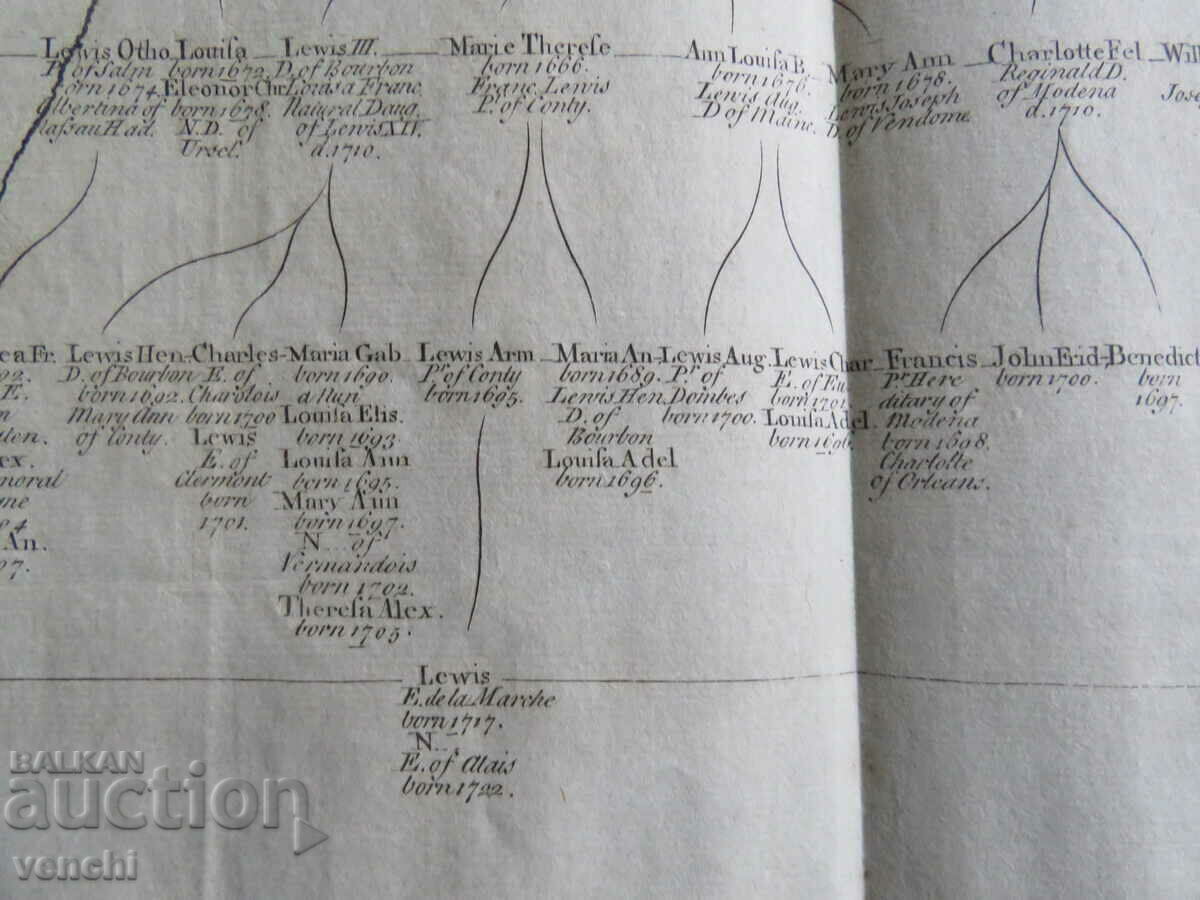 Lewis Otho
P. of Salm
born 1674.
Albertina of
Nassau Had.
Louiſa
born 1672.
Eleonor Chr
born 1678.
N.D. of
Urſel.
Lewis III.
D. of Bourbon
Louisa Franc.
Natural Daug.
of Lewis XIV.
d. 1710.
Marie Thereſe
born 1666.
Franc. Lewis
Pr. of Conty.
Ann Louiſa B.
born 1676.
Lewis Aug.
D of Maine.
Mary Ann
born 1678.
Lewis Joseph
D. of Vendome.
Charlotte Fel
Reginald D.
of Modena
d. 1710.
Will
Jose
ea Fr.
92.
E.
n
ten.
ex.
noral
gne
84
An.
97.
Lewis Hen-
D. of Bourbon
born 1692.
Mary Ann
of Conty.
Charles-
E. of
Charolois
born 1700
Lewis
E. of
Clermont
born
1701.
Maria Gab
born 1690.
a Nun
Louiſa Elis.
born 1693
Louiſa Ann
born 1695.
Mary Ann
born 1697.
N... of
Vermandois
born 1702.
Thereſa Alex.
born 1705.
Lewis Arm
Pr. of Conty
born 1695.
Maria An-
born 1689.
Lewis Hen.
D. of
Bourbon
Louiſa Adel
born 1696.
Lewis Aug.
Pr. of
Dombes
born 1700.
Lewis Char
E. of Eu
born 1701.
Louiſa Adel.
born 1696.
Francis
Pr. Here
ditary of
Modena
born 1698.
Charlotte
of Orleans.
John Frid-
born 1700.
Benedict
born
1697.
Lewis
E. de la Marche
born 1717.
N...
E. of Alais
born 1722.
BALKAN
auction
venchi